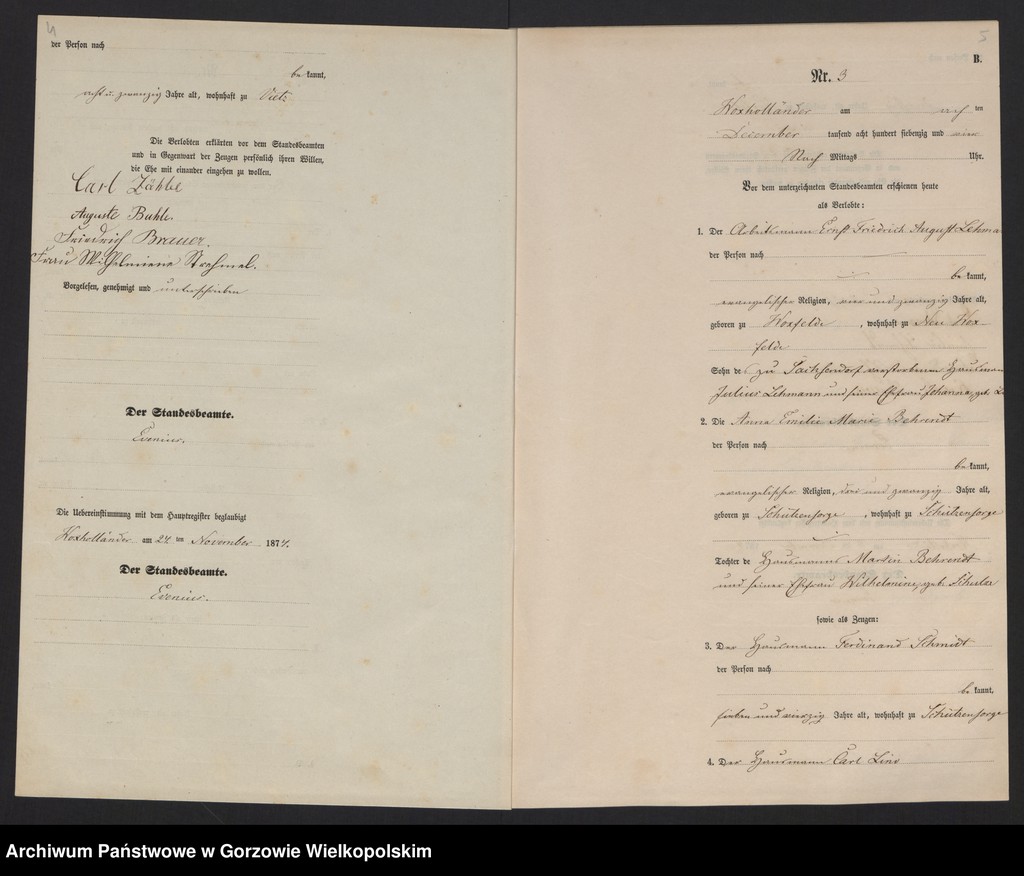 4
der Person nach
bekannt,
acht u. zwanzig Jahre alt, wohnhaft zu Vietz
Die Verlobten erklärten vor dem Standesbeamten
und in Gegenwart der Zeugen persönlich ihren Willen,
die Ehe mit einander eingehen zu wollen.
Carl
Auguste Buhle.
Friedrich Brauer.
Frau Wilhelmiene Strehmel.
Vorgelesen, genehmigt und unterschrieben
Der Standesbeamte.
Evenius.
Die Uebereinstimmung mit dem Hauptregister beglaubigt
Woxholländer am 24 ten November 1874.
Der Standesbeamte.
Evenius.
5
B.
Nr. 3
Woxholländer am ten
December tausend acht hundert siebenzig und vier
Nach Mittags Uhr.
Vor dem unterzeichneten Standesbeamten erschienen heute
als Verlobte:
1. Der Arbeitsmann Ernst Friedrich August Lehma
der Person nach
bekannt,
evangelischer Religion, vier und zwanzig Jahre alt,
geboren zu Woxfelde, wohnhaft zu Neu Wox-
felde
Sohn des zu verstorbenen Hausmann
Julius Lehmann und seiner Ehefrau Johanna, geb.
2. Die Anna Emilie Marie Behrendt
der Person nach
bekannt,
evangelischer Religion, drei und zwanzig Jahre alt,
geboren zu Schützensorge, wohnhaft zu Schützensorge
Tochter des Hausmanns Martin Behrendt
und seiner Ehefrau Wilhelmine, geb. Schulze
sowie als Zeugen:
3. Der Hausmann Ferdinand Schmidt
der Person nach
bekannt,
sieben und vierzig Jahre alt, wohnhaft zu Schützensorge
4. Der Hausmann Carl
Archiwum Państwowe w Gorzowie Wielkopolskim